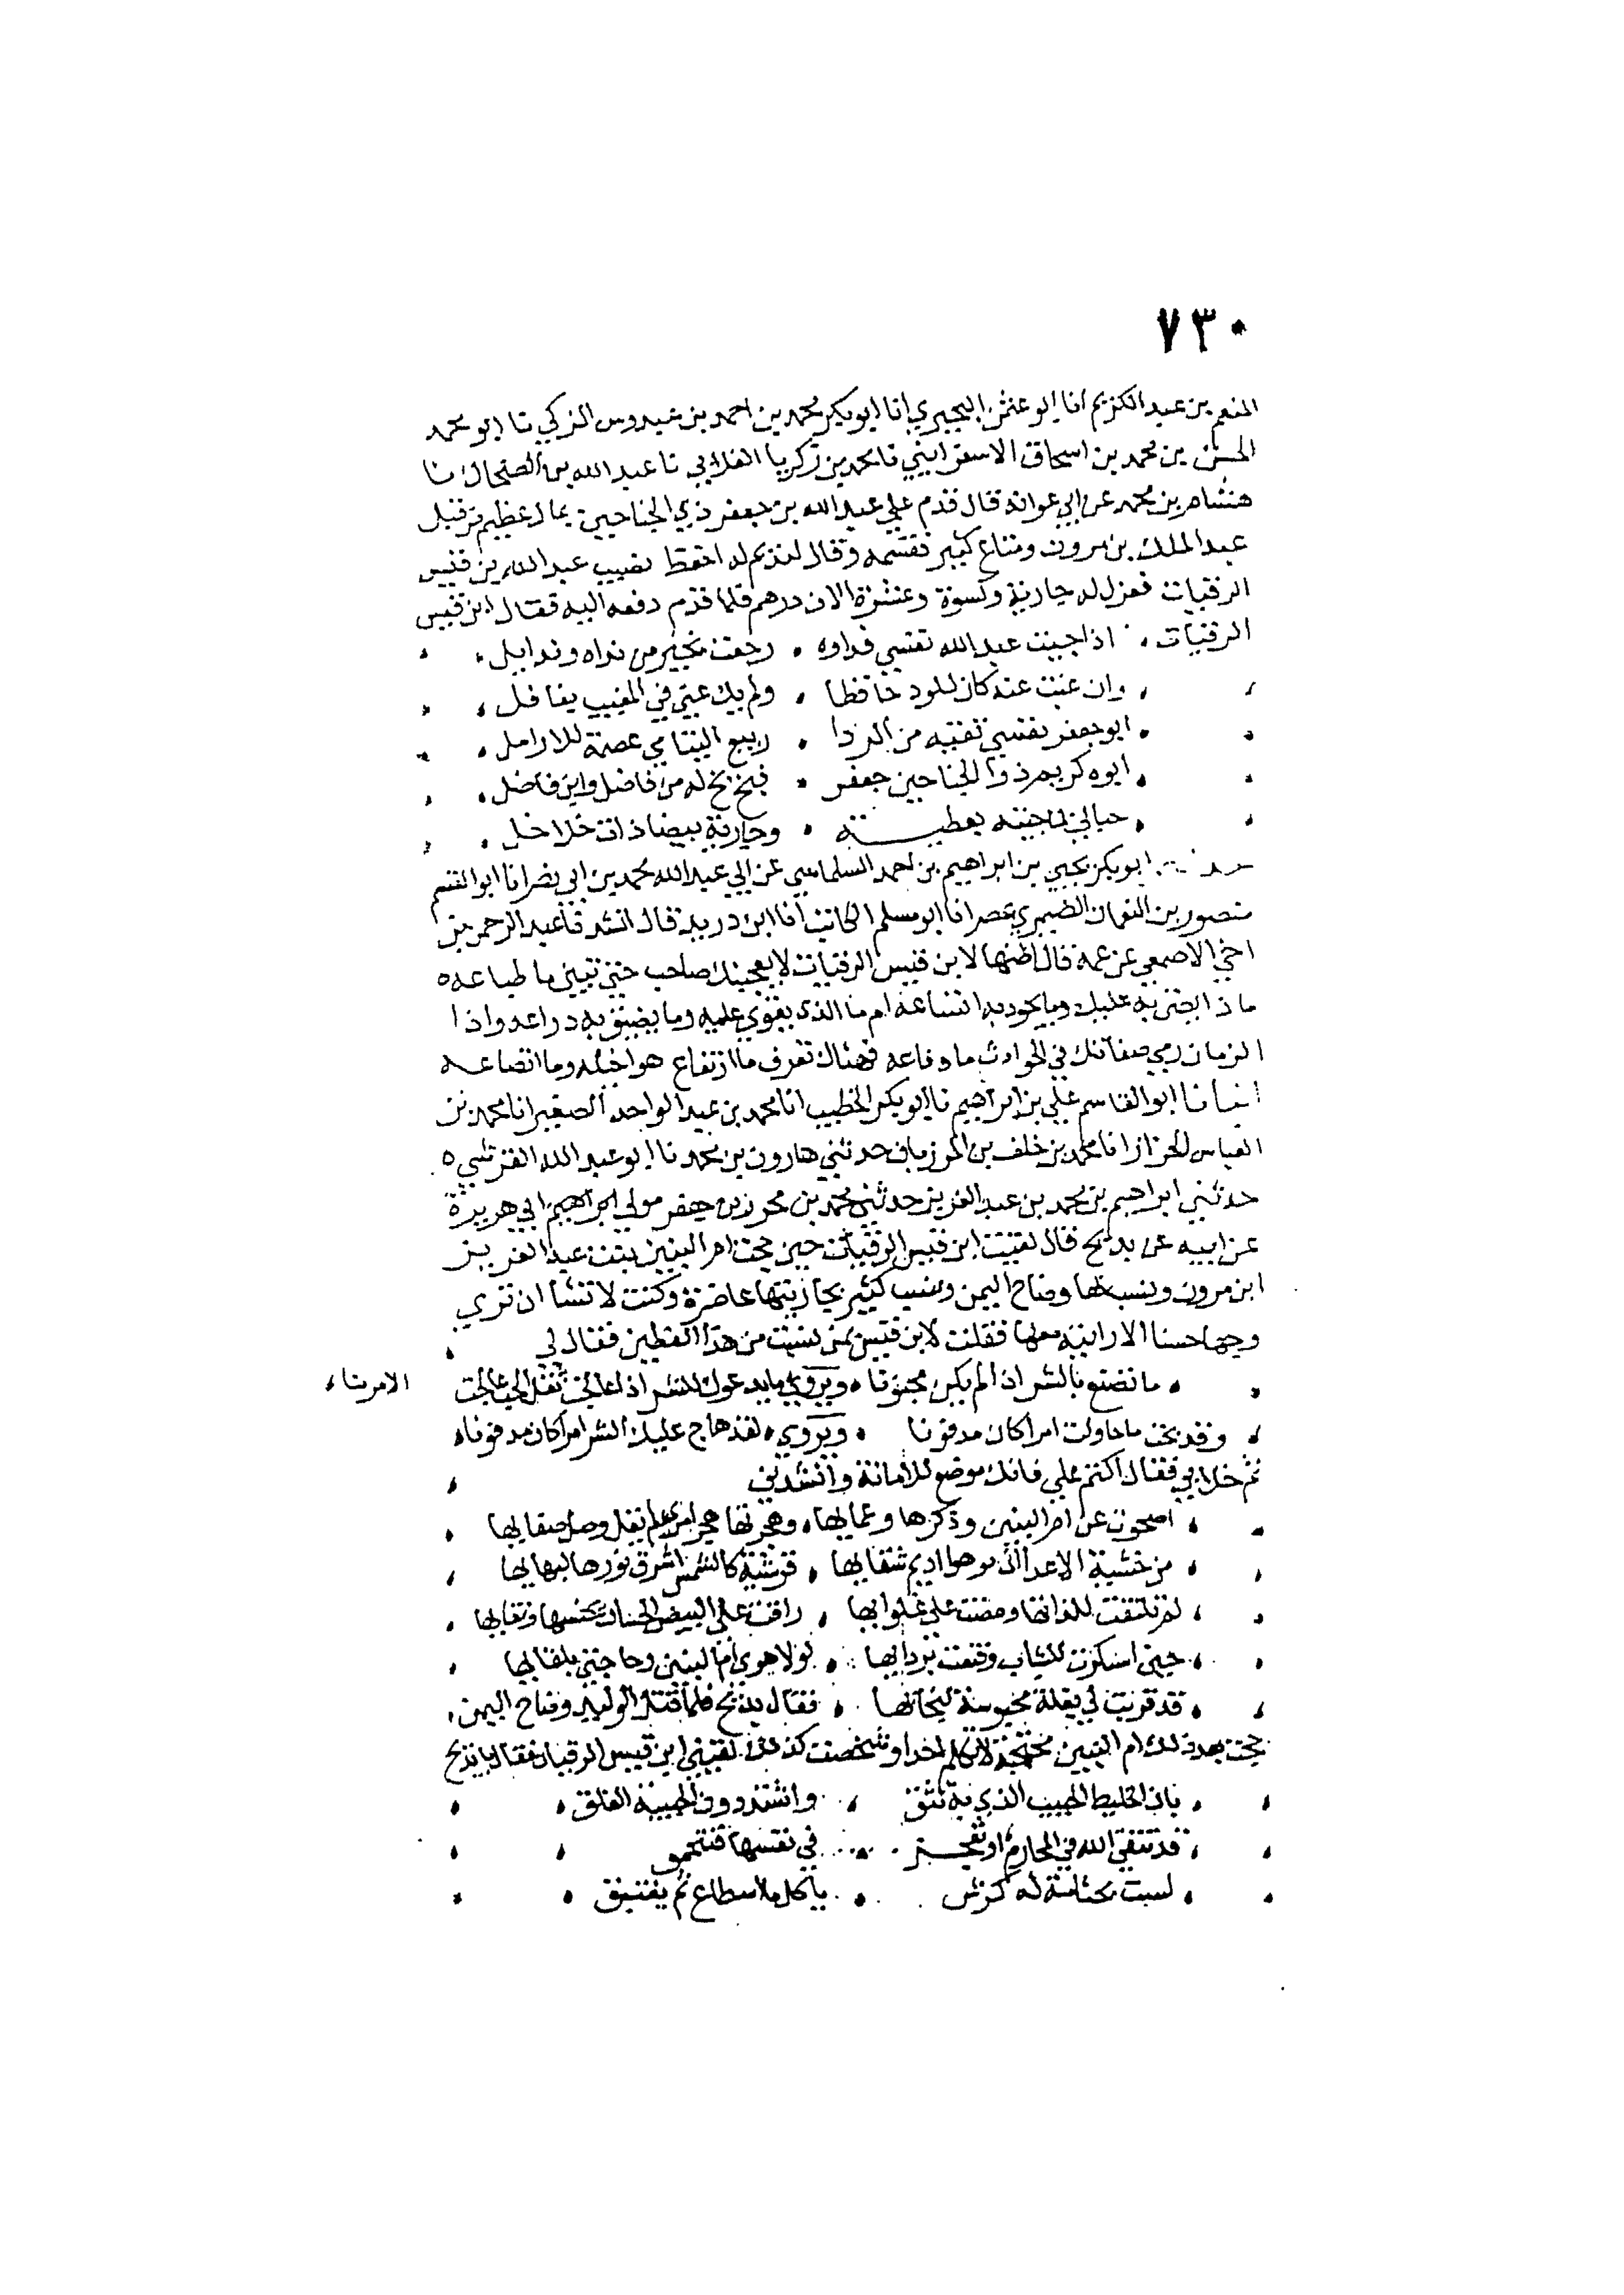 ٧٣٠
المنعم بن عبد الكريم انا ابو عثمن البحيري انا ابو بكر محمد بن احمد بن عبدوس المزكي نا ابو محمد
الحسن بن محمد بن اسحاق الاسفرايني نا محمد بن زكريا الغلابي نا عبد الله بن الضحاك نا
هشام بن محمد عن ابي عوانة قال قدم علي عبد الله بن جعفر ذي الجناحين بمال عظيم من قبل
عبد الملك بن مرون ومتاع كثير فقسمه وقال لنديم له احفظ نصيب عبد الله بن قيس
الرقيات فعزل له جارية وكسوة وعشرة الاف درهم فلما قدم دفعه اليه فقال ابن قيس
الرقيات . اذا جيت عبد الله نفسي فداوه . رجعت بخير من نداه ونايل .
وان غبت عنه كان للود حافظا . ولم يك عني في المغيب بغافل .
ابو جعفر نفسي تقيه من الردا . ربيع اليتامي عصمة للارامل .
ابوه كريم ذو الجناحين جعفر . فبخ بخ له من فاضل وابن فاضل .
حباني لما جيته بعطية . وجارية بيضا ذات خلاخل .
ابو بكر يحيي بن ابراهيم بن احمد السلماسي عن ابي عبد الله محمد بن ابي نصر انا ابو القسم
منصور بن النعمان الصيمري بمصر انا ابو مسلم الكاتب انا ابن دريد قال انشدنا عبد الرحمن بن
اخي الاصمعي عن عمه قال اظنها لابن قيس الرقيات لا يعجبنك صاحب حتي تبين ما طباعه
ماذا يضن به عليك وما يجود به اتساعه ام ما الذي يقوي عليه وما يضيق به ذراعه واذا
الزمان رمي صفاتك في الحوادث ما دفاعه فهناك تعرف ما ارتفاع هوا اخيك وما اتضاعه
انبانا ابو القاسم علي بن ابراهيم نا ابو بكر الخطيب انا محمد بن عبد الواحد الصغير انا محمد بن
العباس الخزاز انا محمد بن خلف بن المرزبان حدثني هارون بن محمد نا ابو عبد الله القرشي
حدثني ابراهيم بن محمد بن عبد العزيز حدثني محمد بن محرز بن جعفر مولي ابي هريرة
عن ابيه عن بديح قال لقيت ابن قيس الرقيات حين حجت ام البنين بنت عبد العزيز
ابن مرون ونسب بها وضاح اليمن ونسب كثير بجاريتها غاضرة وكنت لا تشا ان تري
وجها حسنا الا رايته معها فقلت لابن قيس بمن نسبت من هذا القطين فقال لي
ما تصنع بالشر اذا لم يكن مجنونا . ويروي ما يدعوك للشر اذا عالجت ثقل الحب عالجت الامرينا
وقد بحت ما حاولت امرا كان مدفونا . ويروي . لقد هاج عليك الشر امرا كان مدفونا
ثم خلا بي فقال اكتم علي فانك موضع للامانة وانشدني
اصحوت عن ام البنين وذكرها وعنايها . وهجرتها هجر امري لم يقل وصل صفايها .
من خشية الاعدا ان يوهوا اديم شقايها . قرشية كالشمس اشرق نورها ببهايها
لم تلتفت للداتها ومضت علي غلوايها . زادت علي البيض الحسان بحسنها ونقايها .
حين اسبكرت للشباب وقنعت بردايها . لولا هوي ام البنين وحاجتي بلقايها
قد قربت لي بغلة محبوسة لنجايها . فقال بديح فلما قتل الوليد وضاح اليمن .
حجت بعد ذلك ام البنين محتجبة لا تكلم احدا وشخصت كذلك لقيني ابن قيس الرقيات فقال يا بديح
بان الخليط الحبيب الذي به نثق . واشتد دون الحبيبة القلق .
قد تتقي الله في المحارم او
لسبت له كرش . ياكل ما اسطاع ثم يغتبق